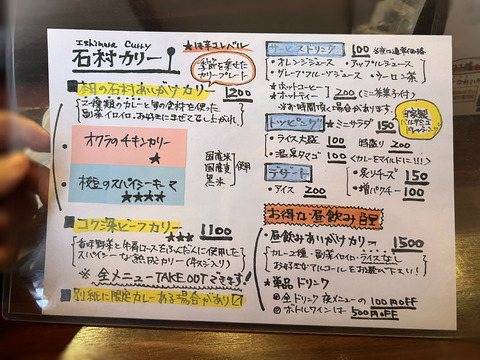 Ishimura Curry
石村カリー
★は辛コレベル
季節を乗せた
カリープレート
本日の石村あいがけカリー
1200
2種類のカレーと旬の食材を使った
副菜イロイロ、お好きにまぜて召し上がれ
オクラのチキンカリー
★
枝豆のスパイシーキーマ
★★★★
国産米
国産麦
黒米
使用
コク深ビーフカリー
★★★ 1100
香味野菜と牛肩ロースをふんだんに使用した
スパイシーな熟成カリー(牛スジ入り)
※全メニューTAKE OUTできます!
別紙に限定カレーある場合があり〼
サービスドリンク 100
・オレンジジュース ・アップルジュース
・グレープフルーツジュース ・ウーロン茶
・ホットコーヒー
・ホットティー 200 (ミニ茶菓子付)
※お時間頂く場合があります。
トッピング
・ミニサラダ 150
自家製
・ライス大盛 100 ・特盛り 200
・温泉タマゴ 100 (カレーをマイルドに!!!)
デザート
・アイス 200
・炙りチーズ 150
・増パクチー 100
お得な昼飲み
・昼飲みあいがけカリー 1500
カレー2種・副菜イロイロ・ライスなし
お好きなアルコールをお選び下さい!
★単品ドリンク
①全ドリンク夜メニューの100円OFF
②ボトルワインは500円OFF